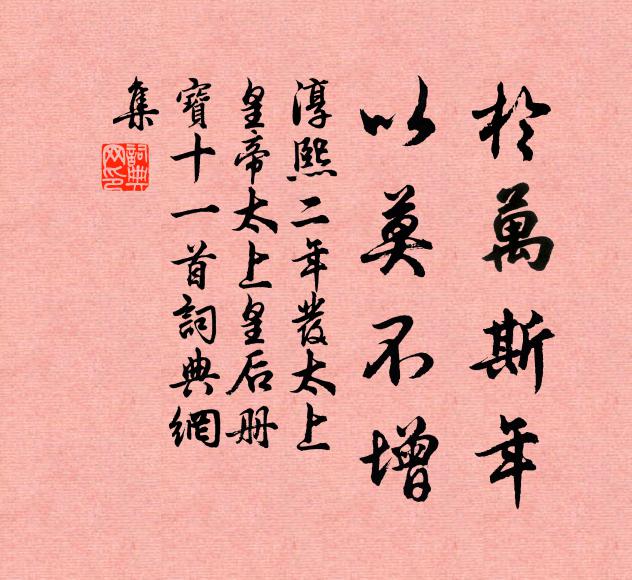 於萬斯年
以莫不增
淳熙二年發太上
皇帝太上皇后册
寶十一首詞典網
集
詞典网印